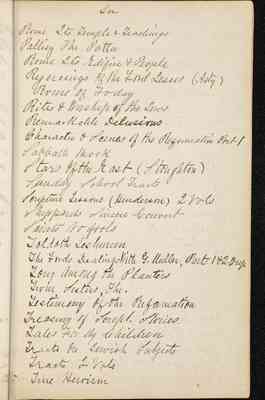 Rome Its Temple & Teachings
Palissy The Potter
Rome Its Edifice & People
Rejoicings of the Lord Jesus (Ady)
Rome of Today
Rites & Worship of the Jews
Remarkable Delusions
Character & Scenes of the Reformation Part 1
Sabbath Book
Stars of the East (Stoughton)
Sunday School Tracts
Scripture Lessons (Henderson) 2 Vols
Convent
Toldoth Jeshurun
The Lords Dealings With G. Muller, Part 1 & 2 Dup
Tony Among the Planters
Twin Sisters, The.
Testimony of the Reformation
Treasury of Script. Stories
Tales For My Children
Tracts On Jewish Subjects
Tracts 2 Vols
True Heroism